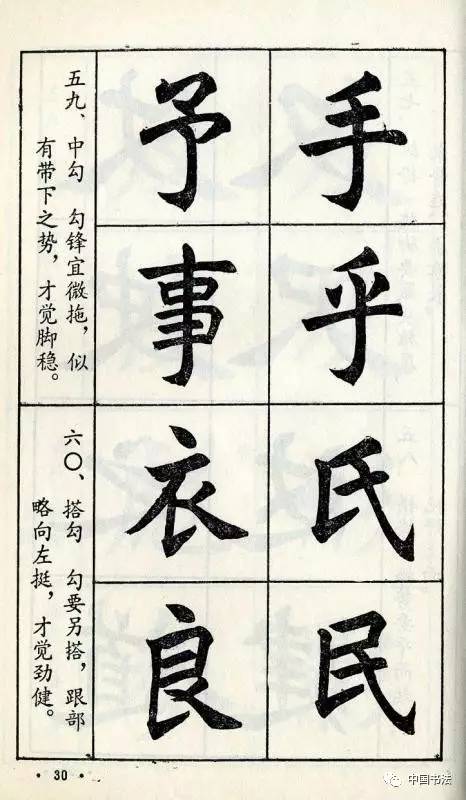 手
乎
氏
民
予
事
衣
良
五九、中勾 勾锋宜微拖，似
有带下之势，才觉脚稳。
六〇、搭勾 勾要另搭，跟部
略向左挺，才觉劲健。
· 30 ·
中国书法